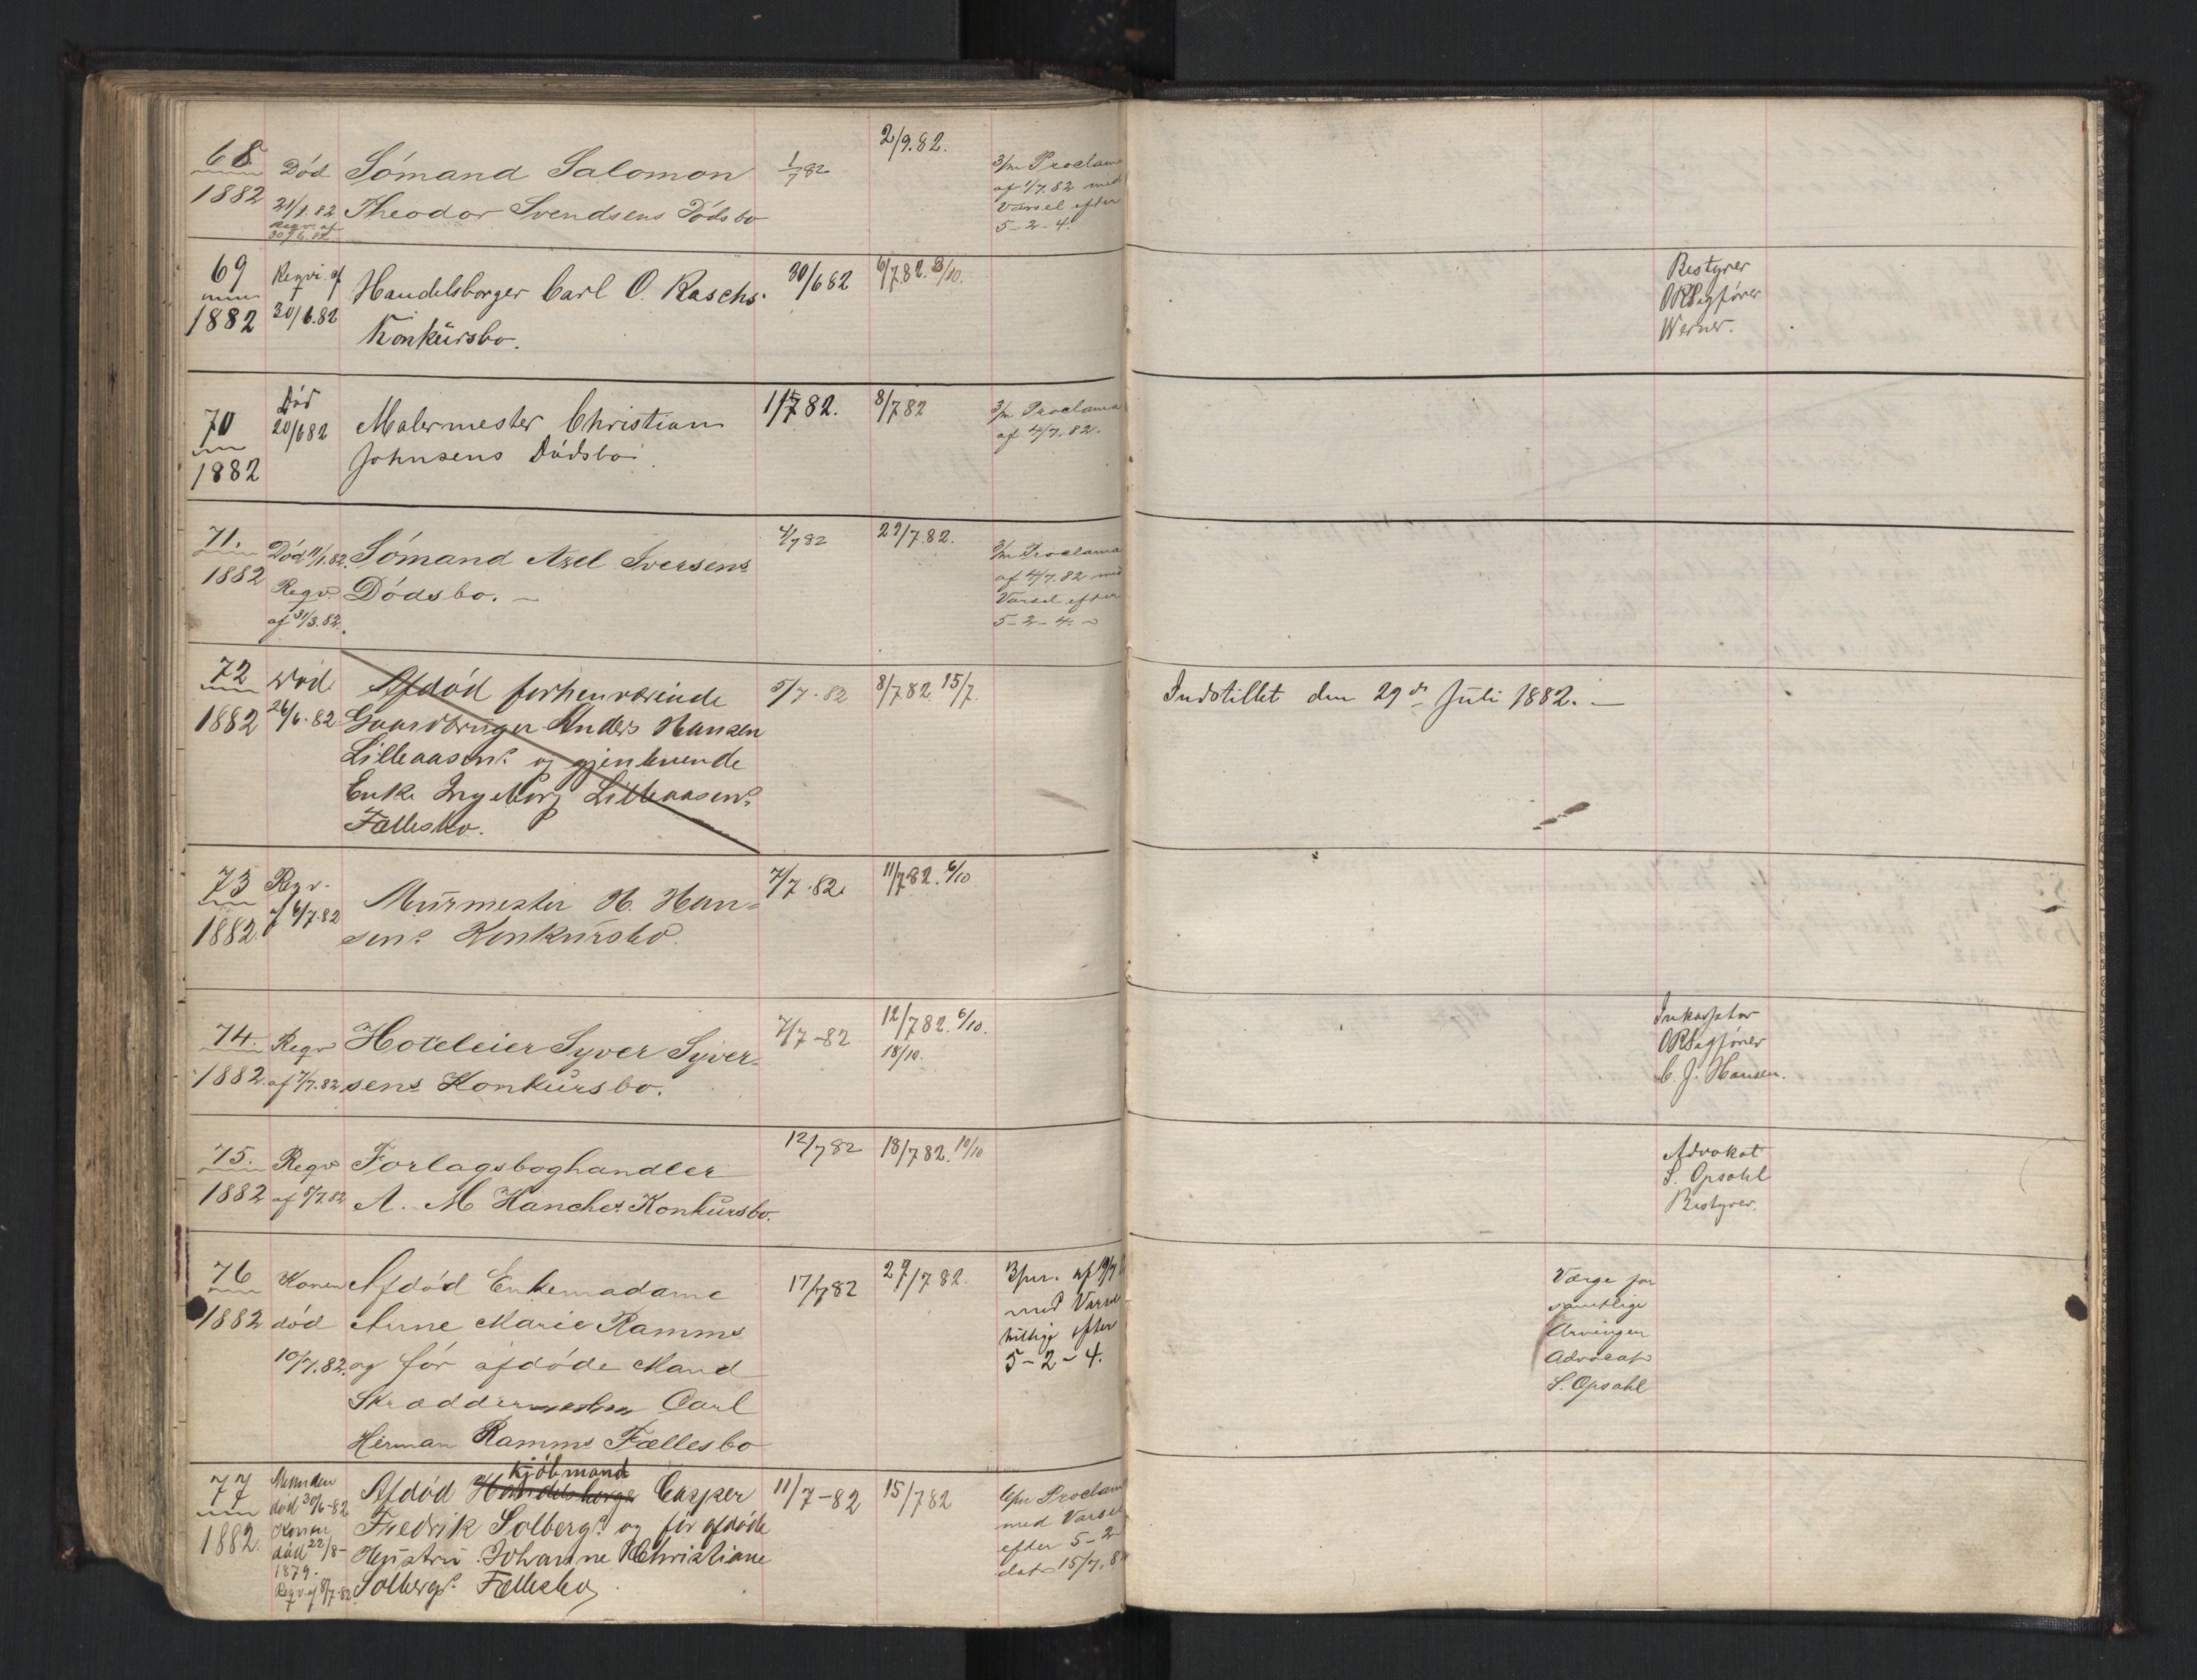 68.
1882
Död
21/1.82
Reqv. af
30/6.82
Sómand Salomon
Theodor Svendsens Dödsbo
1/7 82
2/9.82.
3/m Proclama
af 1/7.82 med
Varsel efter
5-2-4.
69
1882
Reqvi. af
30/6.82
Handelsborger Carl O. Raschs
Konkürsbo.
30/6 82
6/7.82. 3/10.
Bestyrer
ORSagförer
Werner.
70
1882
Död
20/6 82
Malermester Christian
Johnsens Dödsbo
1/7 82.
8/7 82
3/m Proclama
af 4/7.82.
71.
1882
Död 11/1.82.
Reqv.
af 31/3.82.
Sómand Axel Iversens
Dódsbo. —
4/7 82
22/7.82.
3/m Proclama
af 4/7.82 med
Varsel efter
5-2-4.
72
1882
Död
26/6.82
Afdöd forhenværende
Gaardbrüger Anders Hansen
Lilleaasens og gjenlevende
Enke Ingeborg Lilleaasens
Fællesbo.
5/7.82
8/7 82 15/7.
Indstillet den 29de Jüli 1882. —
73
1882.
Reqv.
af 6/7.82
Mürmester H. Han=
sens Konkürsbo.
7/7.82.
11/7 82. 6/10
74.
1882.
Reqv
af 7/7.82
Hoteleier Syver Syver=
sens Konkürsbo.
7/7-82
12/7 82. 6/10.
18/10.
Inkassator
ORSagförer
C. J. Hansen.
75.
1882
Reqv
af 5/7.82
Forlagsboghandler
A. M Hanches Konkürsbo.
12/7 82
18/7 82. 10/10
Advokat
S. Opsahl
Bestyrer.
76
1882
Konen
död
10/7.82.
Afdód Enkemadame
Anne Marie Ramms
og fór afdóde Mand
Skræddermester Carl
Herman Ramms Fællesbo
17/7 82
29/7 82.
3/m. af 19/7
med Varsel
tillige efter
5-2-4.
Værge for
samtlige
Arvinger
Advocat
S. Opsahl
77
1882.
Manden
död 30/6-82
Konen
död 22/8-
1879.
Reqv. af 8/7-82.
Kjöbmand
Afdöd Handelsborger Casper
Fredrik Solbergs og för afdöde
Hüstrü Johanne Christiane
Solbergs Fællesbo
11/7-82
15/7 82
6/m Proclama
med Varsel
efter 5-2-
dat 15/7.8